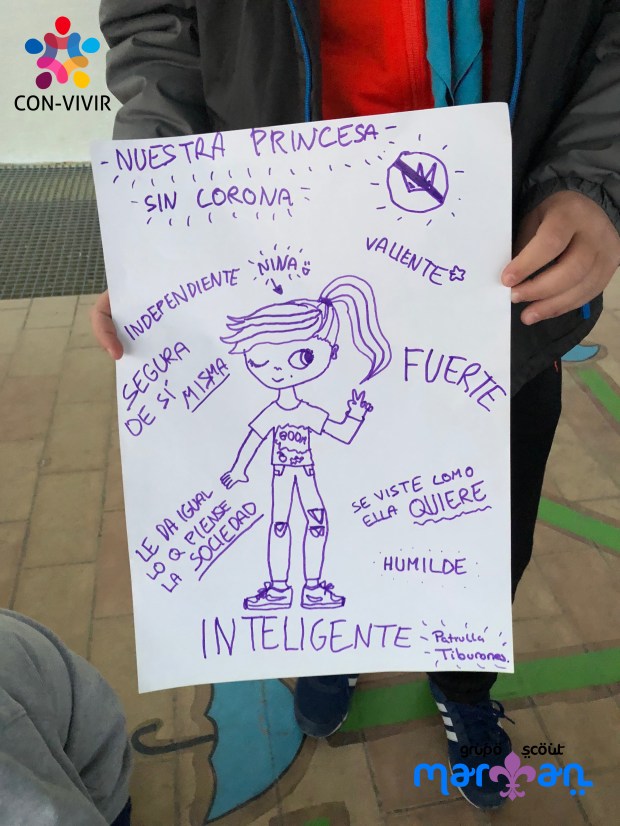 CON-VIVIR
- NUESTRA PRINCESA -
- SIN CORONA -
VALIENTE
INDEPENDIENTE
NINA
SEGURA
DE SÍ MISMA
FUERTE
BOOM
SE VISTE COMO
ELLA QUIERE
LE DA IGUAL
LO Q PIENSE
LA SOCIEDAD
HUMILDE
INTELIGENTE
Patrulla
Tiburones.
grupo scout